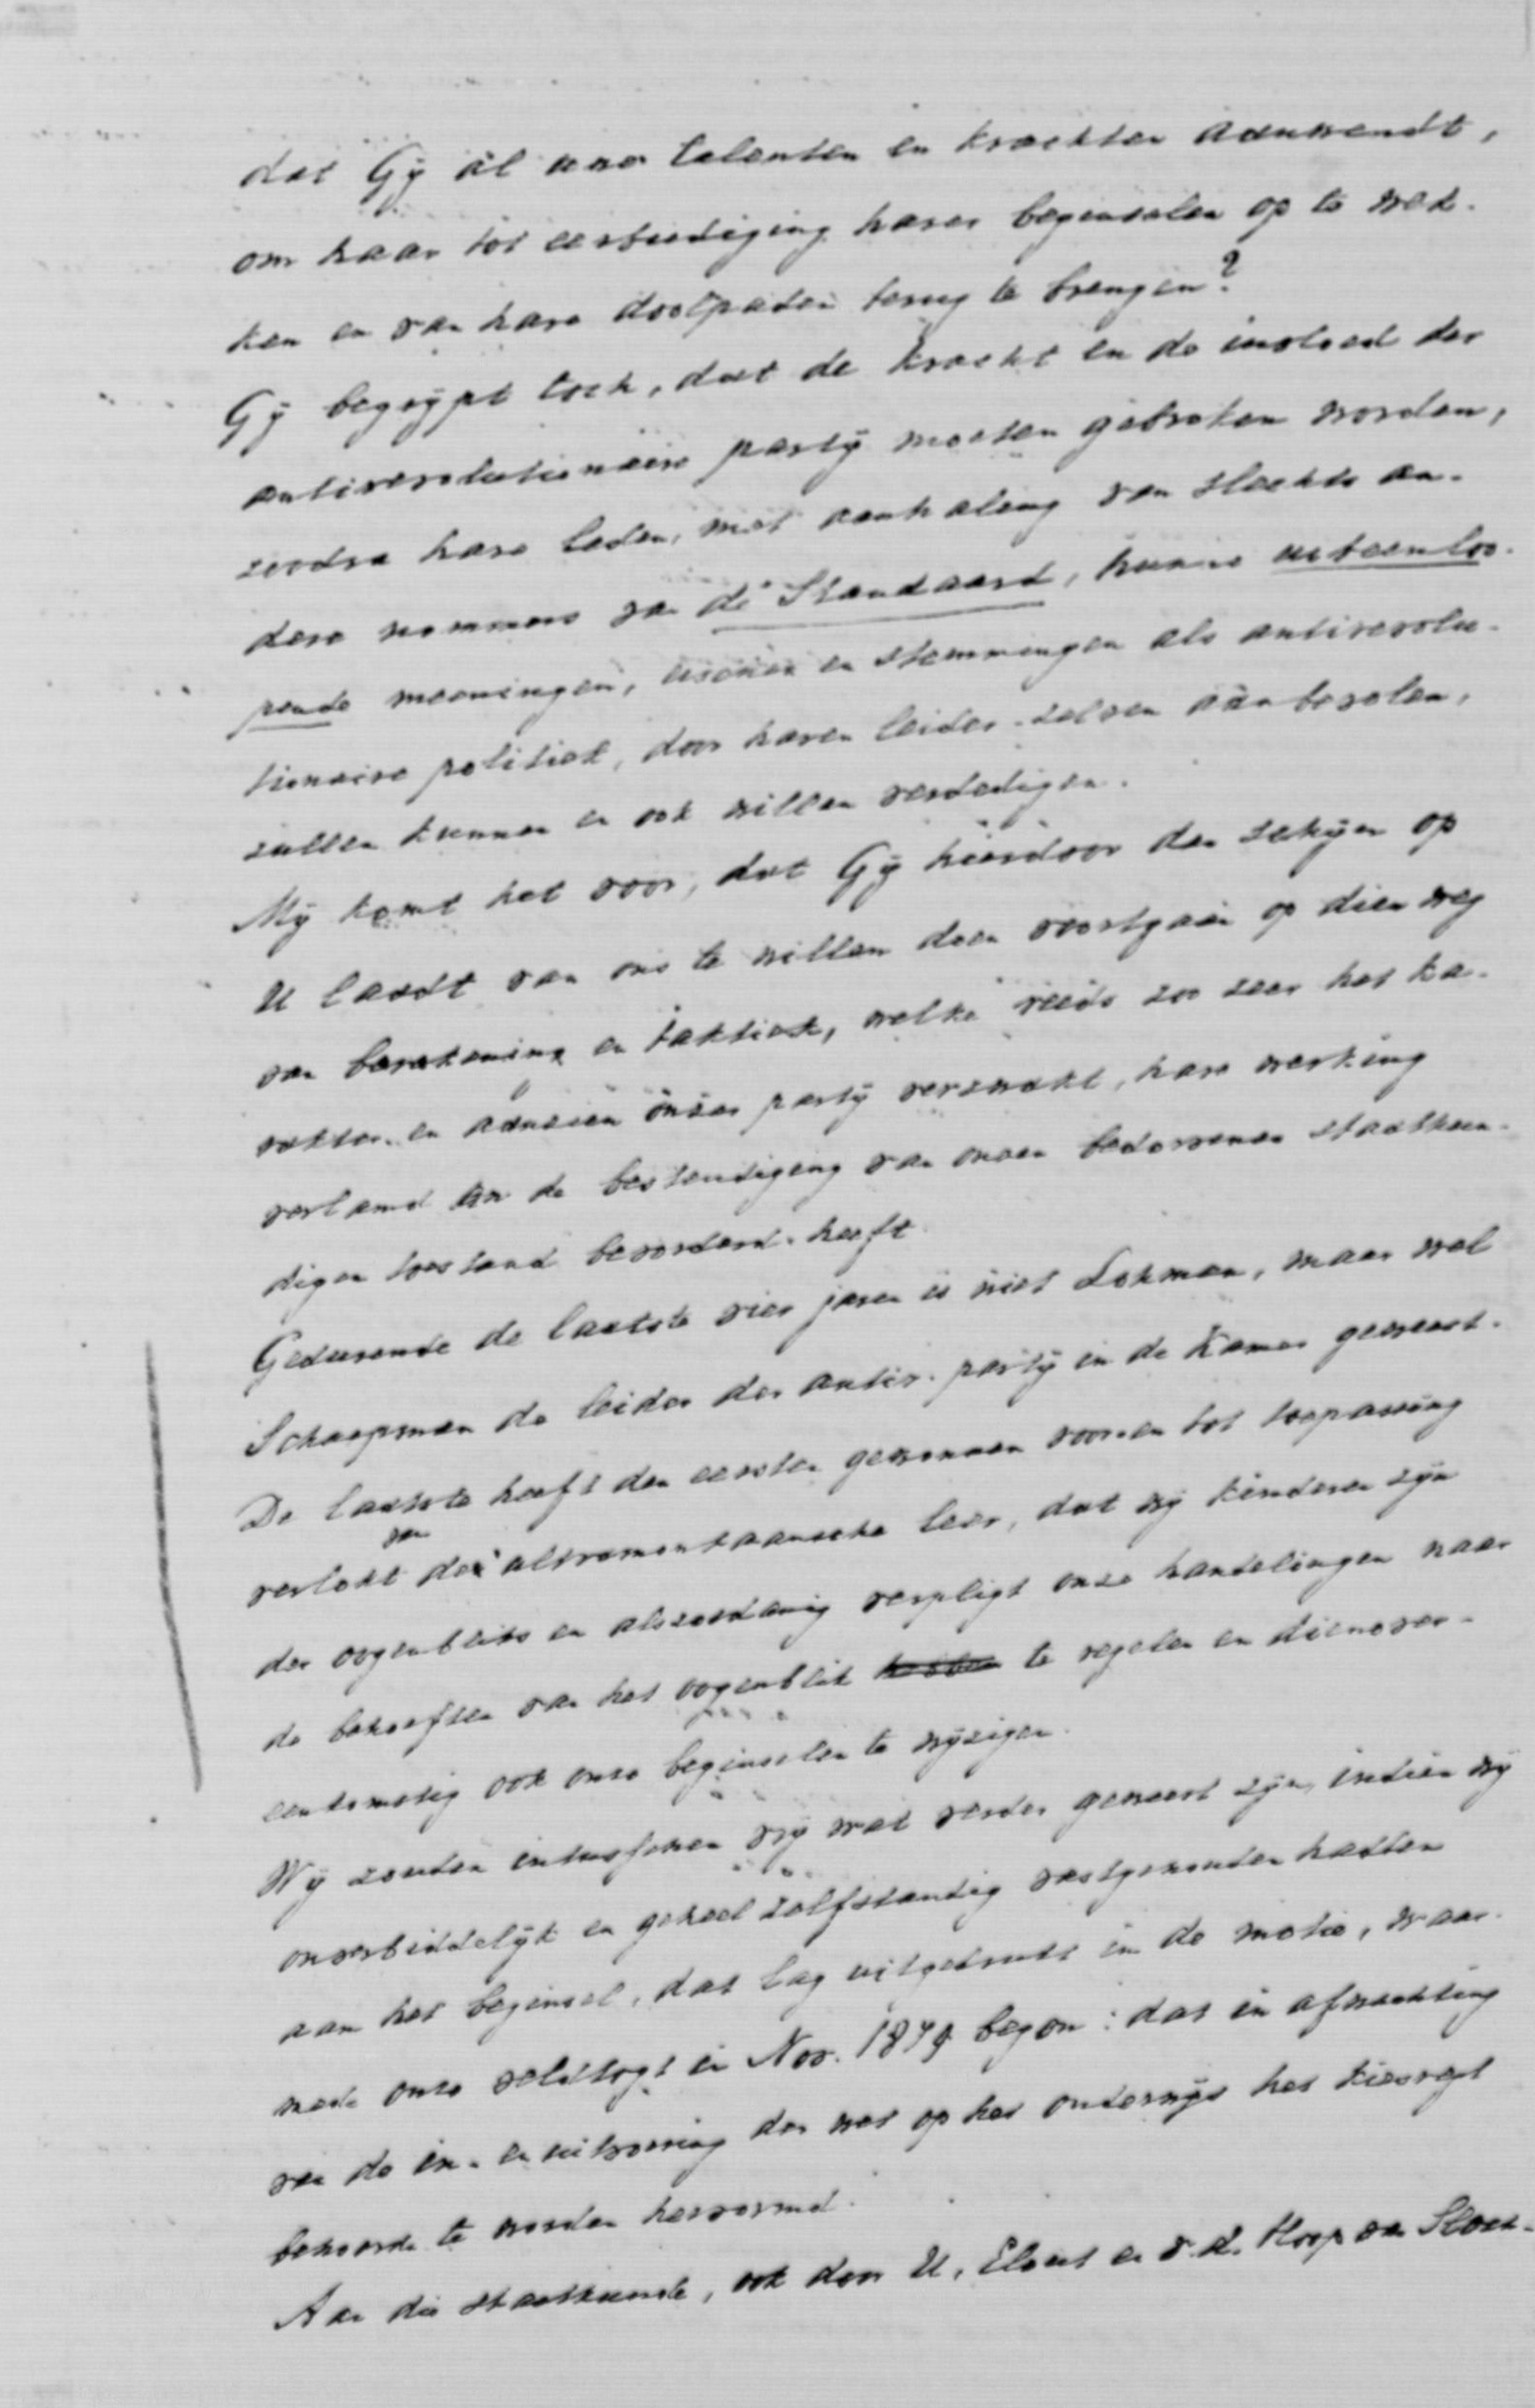 dat Gÿ ál uwe talenten en krachten aanwendt,
om haar tot eerbiediging harer beginselen op te wek-
ken en van hare doolpaden terug te brengen?
Gÿ begrÿpt toch, dat de kracht en de invloed der
antirevolutionaire partÿ moeten gebroken worden,
zoodra hare leden, met aanhaling van slechts an-
dere nommers van de Standaard, hunne uiteenloo-
pende meeningen, eischen en stemmingen als antirevolu-
tionaire politiek, door haren leider-zelven aanbevolen,
zullen kunnen en ook willen verdedigen.
Mÿ komt het voor, dat Gÿ hierdoor den schÿn op
U laadt van ons te willen doen voortgaan op dien weg
van berekening en taktiek, welke reeds zoo zeer het ka-
rakter en aanzien onzer partÿ verzwakt, hare werking
verlamd en de bestendiging van onzen bedorvenen staatkun-
digen toestand bevorderd heeft.
Gedurende de laatste vier jaren is niet Lohman, maar wel
Schaepman de leider der antir. partÿ in de Kamer geweest.
De laatste heeft den eersten gewonnen voor en tot toepassing
verlokt der ultramontaansche leer, dat wÿ kinderen zÿn
van
des oogenbliks en alszoodanig verpligt onze handelingen naar
de behoeften van het oogenblik te regelen en dienover-
eenkomstig ook onze beginselen te wÿzigen.
Wÿ zouden intusschen vrÿ wat verder geweest zÿn, indien wÿ
onverbiddelÿk en geheel zelfstandig vastgehouden hadden
aan het beginsel, dat lag uitgedrukt in de motie, waar-
mede onze veldtogt in Nov. 1879 begon: dat in afwachting
van de in- en uitvoering der wet op het onderwÿs het kiesregt
behoorde te worden hervormd.
Aan die staatkunde, ook door U, Elout en v. d. Hoop van Sloch-